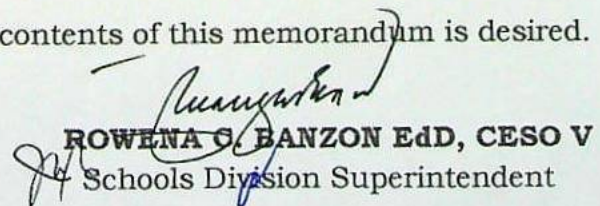 contents of this memorandum is desired.
ROWENA C. BANZON EdD, CESO V
Schools Division Superintendent